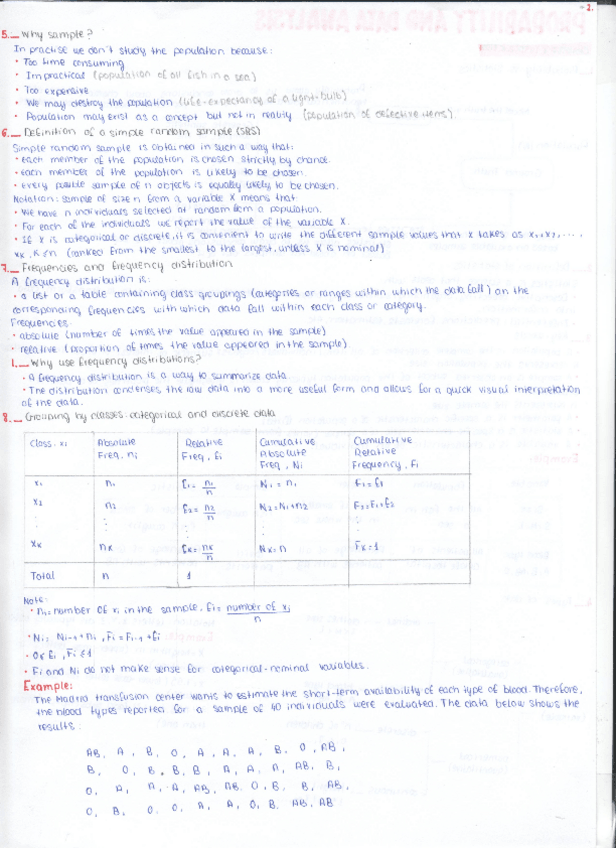 -2.
5._ Why sample?
In practise we don't study the population because:
• Too time consuming
• Impractical (population of all fish in a sea)
• Too expensive
• We may destroy the population (life-expectancy of a light-bulb)
• Population may exist as a concept but not in reality (population of defective items).
6._ Definition of a simple random sample (SRS)
Simple random sample is obtained in such a way that:
• each member of the population is chosen strictly by chance.
• each member of the population is likely to be chosen.
• every posible sample of n objects is equally likely to be chosen.
Notation: sample of size n from a variable X means that:
• We have n individuals selected at random form a population.
• For each of the individuals we report the value of the variable X.
• If X is categorical or discrete, it is convenient to write the different sample values that X takes as x₁, x₂, ....,
xk, K≤n (ranked from the smallest to the largest, unless X is nominal)
7._ Frequencies and frequency distribution
A frequency distribution is:
• a list or a table containing class groupings (categories or ranges within which the data fall) on the
corresponding frequencies with which data fall within each class or category.
Frequencies:
• absolute (number of times the value appeared in the sample)
• relative (proportion of times the value appeared in the sample)
1._ Why use frequency distributions?
• A frequency distribution is a way to summarize data.
• The distribution condenses the raw data into a more useful form and allows for a quick visual interpretation
of the data.
8._ Grouping by classes: categorical and discrete data
Class, xi Absolute Freq, ni Relative Freq, fi Cumulative Absolute Freq, Ni Cumulative Relative Frequency, Fi
x₁ n₁ f₁= n₁/n N₁ = n₁ F₁=f₁
x₂ n₂ f₂= n₂/n N₂=N₁+n₂ F₂=F₁+f₂
xk nk fk= nk/n Nk=n Fk=1
Total n 1
Note:
• ni=number of xi in the sample, fi= number of xi/n
• Ni= Ni-1+ni, Fi=Fi-1+fi
• 0≤fi, Fi≤1
• Fi and Ni do not make sense for categorical-nominal variables.
Example:
The Madrid transfusion center wants to estimate the short-term availability of each type of blood. Therefore,
the blood types reported for a sample of 40 individuals were evaluated. The data below shows the
results:
AB, A, B, O, A, A, A, B, O, AB,
B, O, B, B, B, A, A, A, AB, B,
O, A, A, A, AB, AB, O, B, B, AB,
O, B, O, O, A, A, O, B, AB, AB